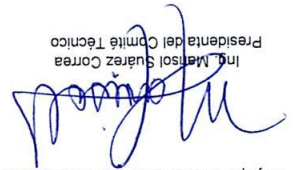 Ing. Marisol Suárez Correa
Presidenta del Comité Técnico